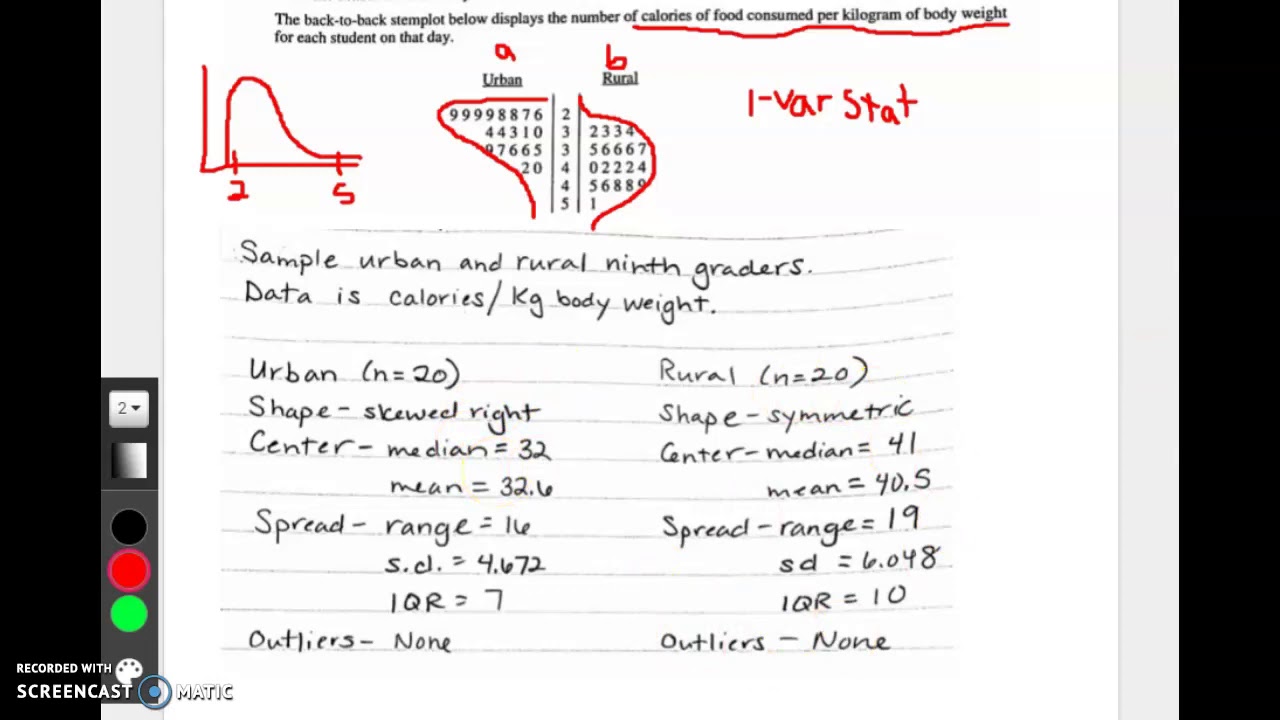 The back-to-back stemplot below displays the number of calories of food consumed per kilogram of body weight
for each student on that day.
a b
Urban Rural
1-Var Stat
99998876 2
44310 3 2334
97665 3 56667
20 4 02224
4 56889
5 1
2 5
Sample urban and rural ninth graders.
Data is calories/Kg body weight.
Urban (n=20) Rural (n=20)
Shape - skewed right Shape - symmetric
Center - median = 32 Center - median = 41
mean = 32.6 mean = 40.5
Spread - range = 16 Spread - range = 19
s.d. = 4.672 sd = 6.048
IQR = 7 IQR = 10
Outliers - None Outliers - None
2
RECORDED WITH
SCREENCAST MATIC